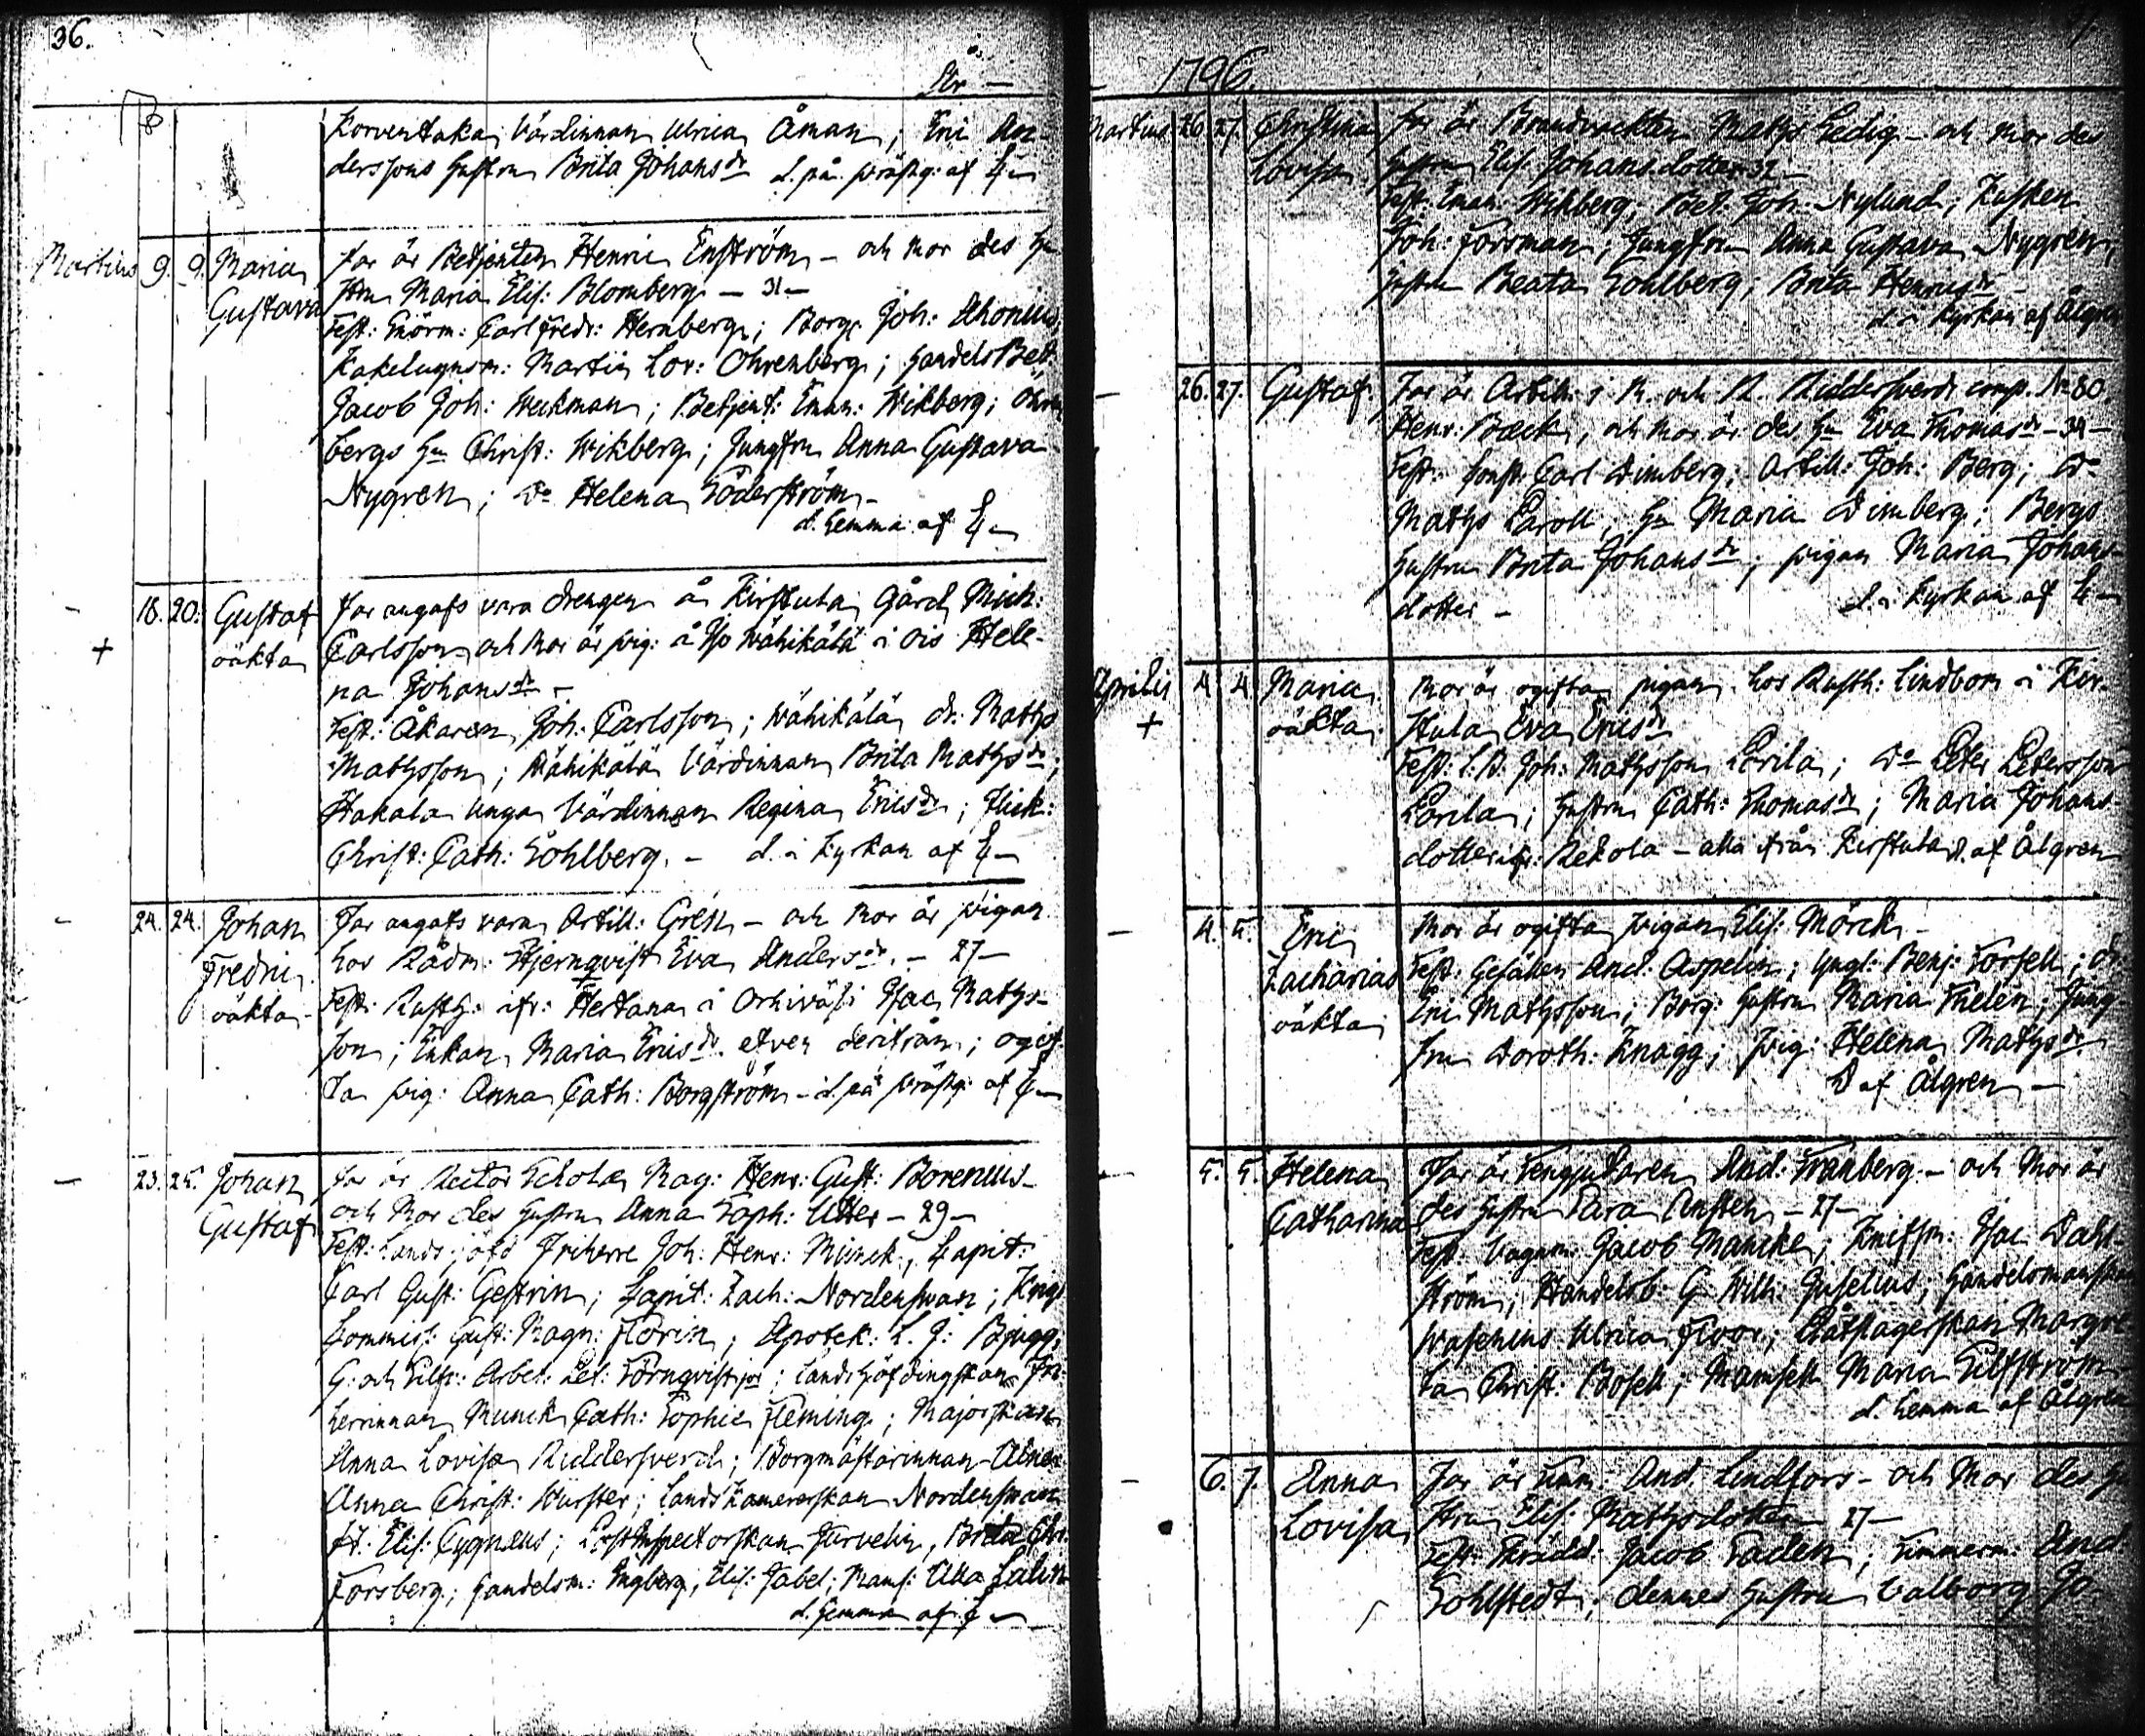 36.
År —
Korventaka Värdinnan Ulrica Åman; Eric An-
derssons hustru Brita Johansdr d. på prästg: af
Martius 9. 9. Maria Gustava
Far är Betjenten Henric Enström – och Mor des hu
stru Maria Elis: Blomberg – 31 –
Test: Snörm: Carl Fredr: Hernberg; Borg: Joh: Ahonius;
Kakelugnsm: Martin Lor: Öhrenberg; handels Bet:
Jacob Joh: Weckman; Betjent: Eman: Wikberg; Öhren
bergs hu Christ: Wikberg; Jungfru Anna Gustava
Nygren; Do Helena Söderström –
d. hemma af
– 18. 20. Gustaf oäkta +
Far angafs vara drengen å Kirstula Gård Mich:
Carlsson och Mor är pig: å Wähikälä i Ois Hele-
na Johansdr –
Test: Åkaren Joh: Carlsson; Wähikälä dr: Mathys
Mathysson; Wähikälä Värdinnan Brita Mathysdr;
Hakala unga Värdinnan Regina Ericsdr; Flick:
Christ: Cath: Sohlberg. – d. i Kyrkan af
– 24. 24. Johan Fredric oäkta
Far angafs vara Artill: Grén – och Mor är pigan
hos Rådm: Hjernqvist Eva Andersdr. – 27 –
Test: Rusth: ifr: i Orhiväsi Isac Mathys-
son; Enkan Maria Ericsdr. efven derifrån; ogif
ta pig: Anna Cath: Borgström – d. på prästg: af
– 23. 25. Johan Gustaf
Far är Rector Scholæ Mag: Henr: Gust: Borenius –
och Mor des hustru Anna Soph: Utter – 29 –
Test: Friherre Joh: Henr: Munck; Capit:
Carl Gust: Gestrin; Capit: Zach: Nordenswan; Krigs
Commiss: Gust: Magn: Florin; Apotek: L. J: Bjugg;
G: och Silfr: Arbet: Törnqvist; Landshöfdingskan Fri-
herrinnan Munck Cath: Sophia Fleming; Majorskan
Anna Lovisa Riddersverd; Borgmästarinnan
Anna Christ: Wurster; Lands Kamererskan Nordenswan
Elis: Cygnæus; Post Inspectorskan Järvelin, Brita Chr:
Forsberg; handelsm: Engberg, Elis: Tabel; Mams: Ulla
d. hemma af
1796.
Martius 26. 27. Christina Lovisa
Far är Brandvackten Mathys Ledig – och Mor des
hustru Elis: Johansdotter 32 –
Test: Eman: Wikberg; Bet: Joh: Nylund; Kusken
Joh: Forsman; Jungfru Anna Gustava Nygren;
hustru Beata Sohlberg; Brita Henricsdr –
d. i Kyrkan af Ålgren
– 26. 27. Gustaf.
Far är Artill: i R. och R. Riddersverds comp. No 80
Henr: Bæck, och Mor är des hu Eva Thomasdr – 34 –
Test: Carl Dimberg; Artill: Joh: Berg; Do
Mathys Paroll; hu Maria Dimberg; Bergs
hustru Brita Johansdr; pigan Maria Johans-
dotter – d. i Kyrkan af
Aprilis 4 4 Maria oäkta +
Mor är ogifta pigan hos Rusth: Lindbom i Kir-
stula Eva Ericsdr
Test: Joh: Mathysson Perila; Do Peter Petersson
Perila; hustru Cath: Thomasdr; Maria Johans-
dotter ifr: Rekola – alla från Kirstula d. af Ålgren
– 4. 5. Eric Zacharias oäkta
Mor är ogifta pigan Elis: Mörck –
Test: Gesällen And: Aspelin; Yngl: Benj: Forsell; dr:
Eric Mathysson; Borg: hustru Maria Thelen; Jung
fru Doroth: Knagg; pig: Helena Mathysdr –
D af Ålgren –
– 5. 5. Helena Catharina
Far är And: Tranberg – och Mor är
des hustru Sara Ansten – 27 –
Test: Vagnm: Jacob Mancke; Knifsm: Isac Dahl-
ström; Handelsb: G: Wilh: Guselius; handelsmanskan
Ulrica Floor; Margre
ta Christ: Bosell; Mamsell Maria Silfström –
d. hemma af Ålgren
– 6. 7. Anna Lovisa
Far är Timm: And: Lindfors – och Mor des hu
stru Elis: Mathysdotter – 27 –
Test: Jacob Saden; Timmerm: And
Sohlstedt; dennes hustru Valborg Jo-